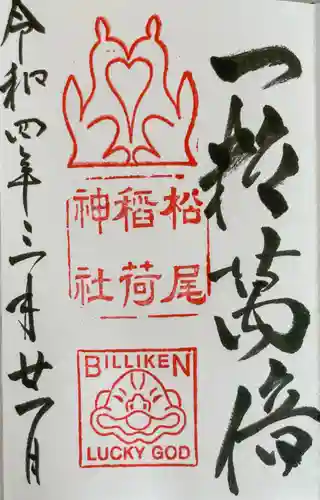 一粒萬倍
松尾
稲荷
神社
BILLIKEN
LUCKY GOD
令和四年三月廿一日